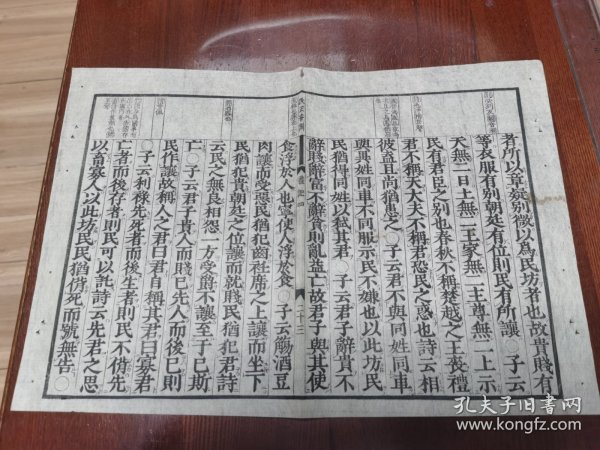 者所以章疑別微以為民坊者也故貴賤有
等衣服有別朝廷有位則民有所讓〇子云
天無二日土無二王家無二主尊無二上示
民有君臣之別也春秋不稱楚越之王喪禮
君不稱天大夫不稱君恐民之惑也詩云相
彼盍旦尚猶患之〇子云君不與同姓同車
與異姓同車不同服示民不嫌也以此坊民
民猶得同姓以弒其君〇子云君子辭貴不
辭賤辭富不辭貧則亂益亡故君子與其使
二十三
食浮於人也寧使人浮於食〇子云觴酒豆
肉讓而受惡民猶犯齒衽席之上讓而坐下
民猶犯貴朝廷之位讓而就賤民猶犯君詩
云民之無良相怨一方受爵不讓至于已斯
亡〇子云君子貴人而賤己先人而後己則
民作讓故稱人之君曰君自稱其君曰寡君
〇子云利祿先死者而後生者則民不偝先
亡者而後存者則民可以託詩云先君之思
以畜寡人以此坊民民猶偝死而號無告〇
孔夫子旧書网
www.kongfz.com